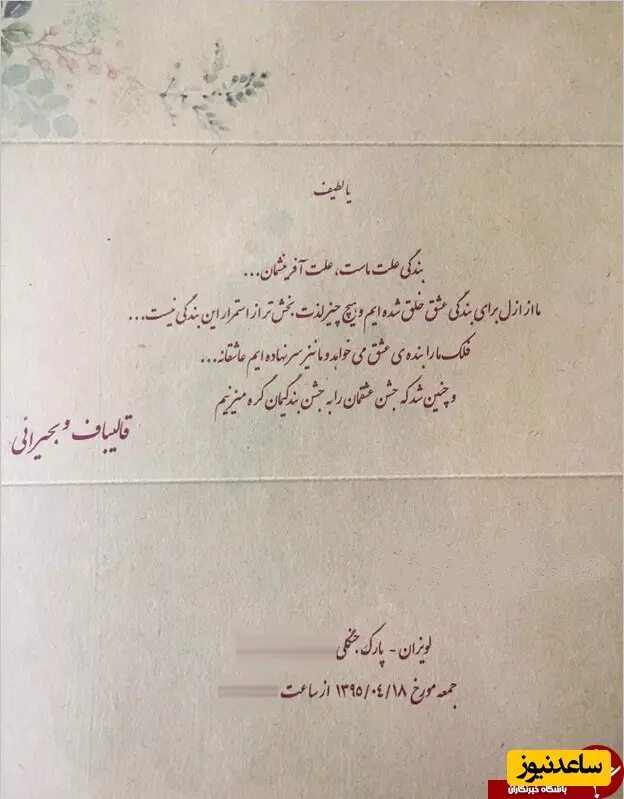 یا لطیف
بندگی علت ماست، علت آفرینشمان...
ما از ازل برای بندگی عشق خلق شده ایم و هیچ چیز لذت بخش تر از استمرار این بندگی نیست...
فلک ما را بنده ی عشق می خواهد و ما نیز سر نهاده ایم عاشقانه...
و چنین شد که جشن عشقمان را به جشن بندگیمان گره میزنیم
قالیباف و بحیرائی
لویزان - پارک جنگلی
جمعه مورخ ۱۳۹۵/۰۴/۱۸ از ساعت
ساعدنیوز
باشگاه خبرنگاران